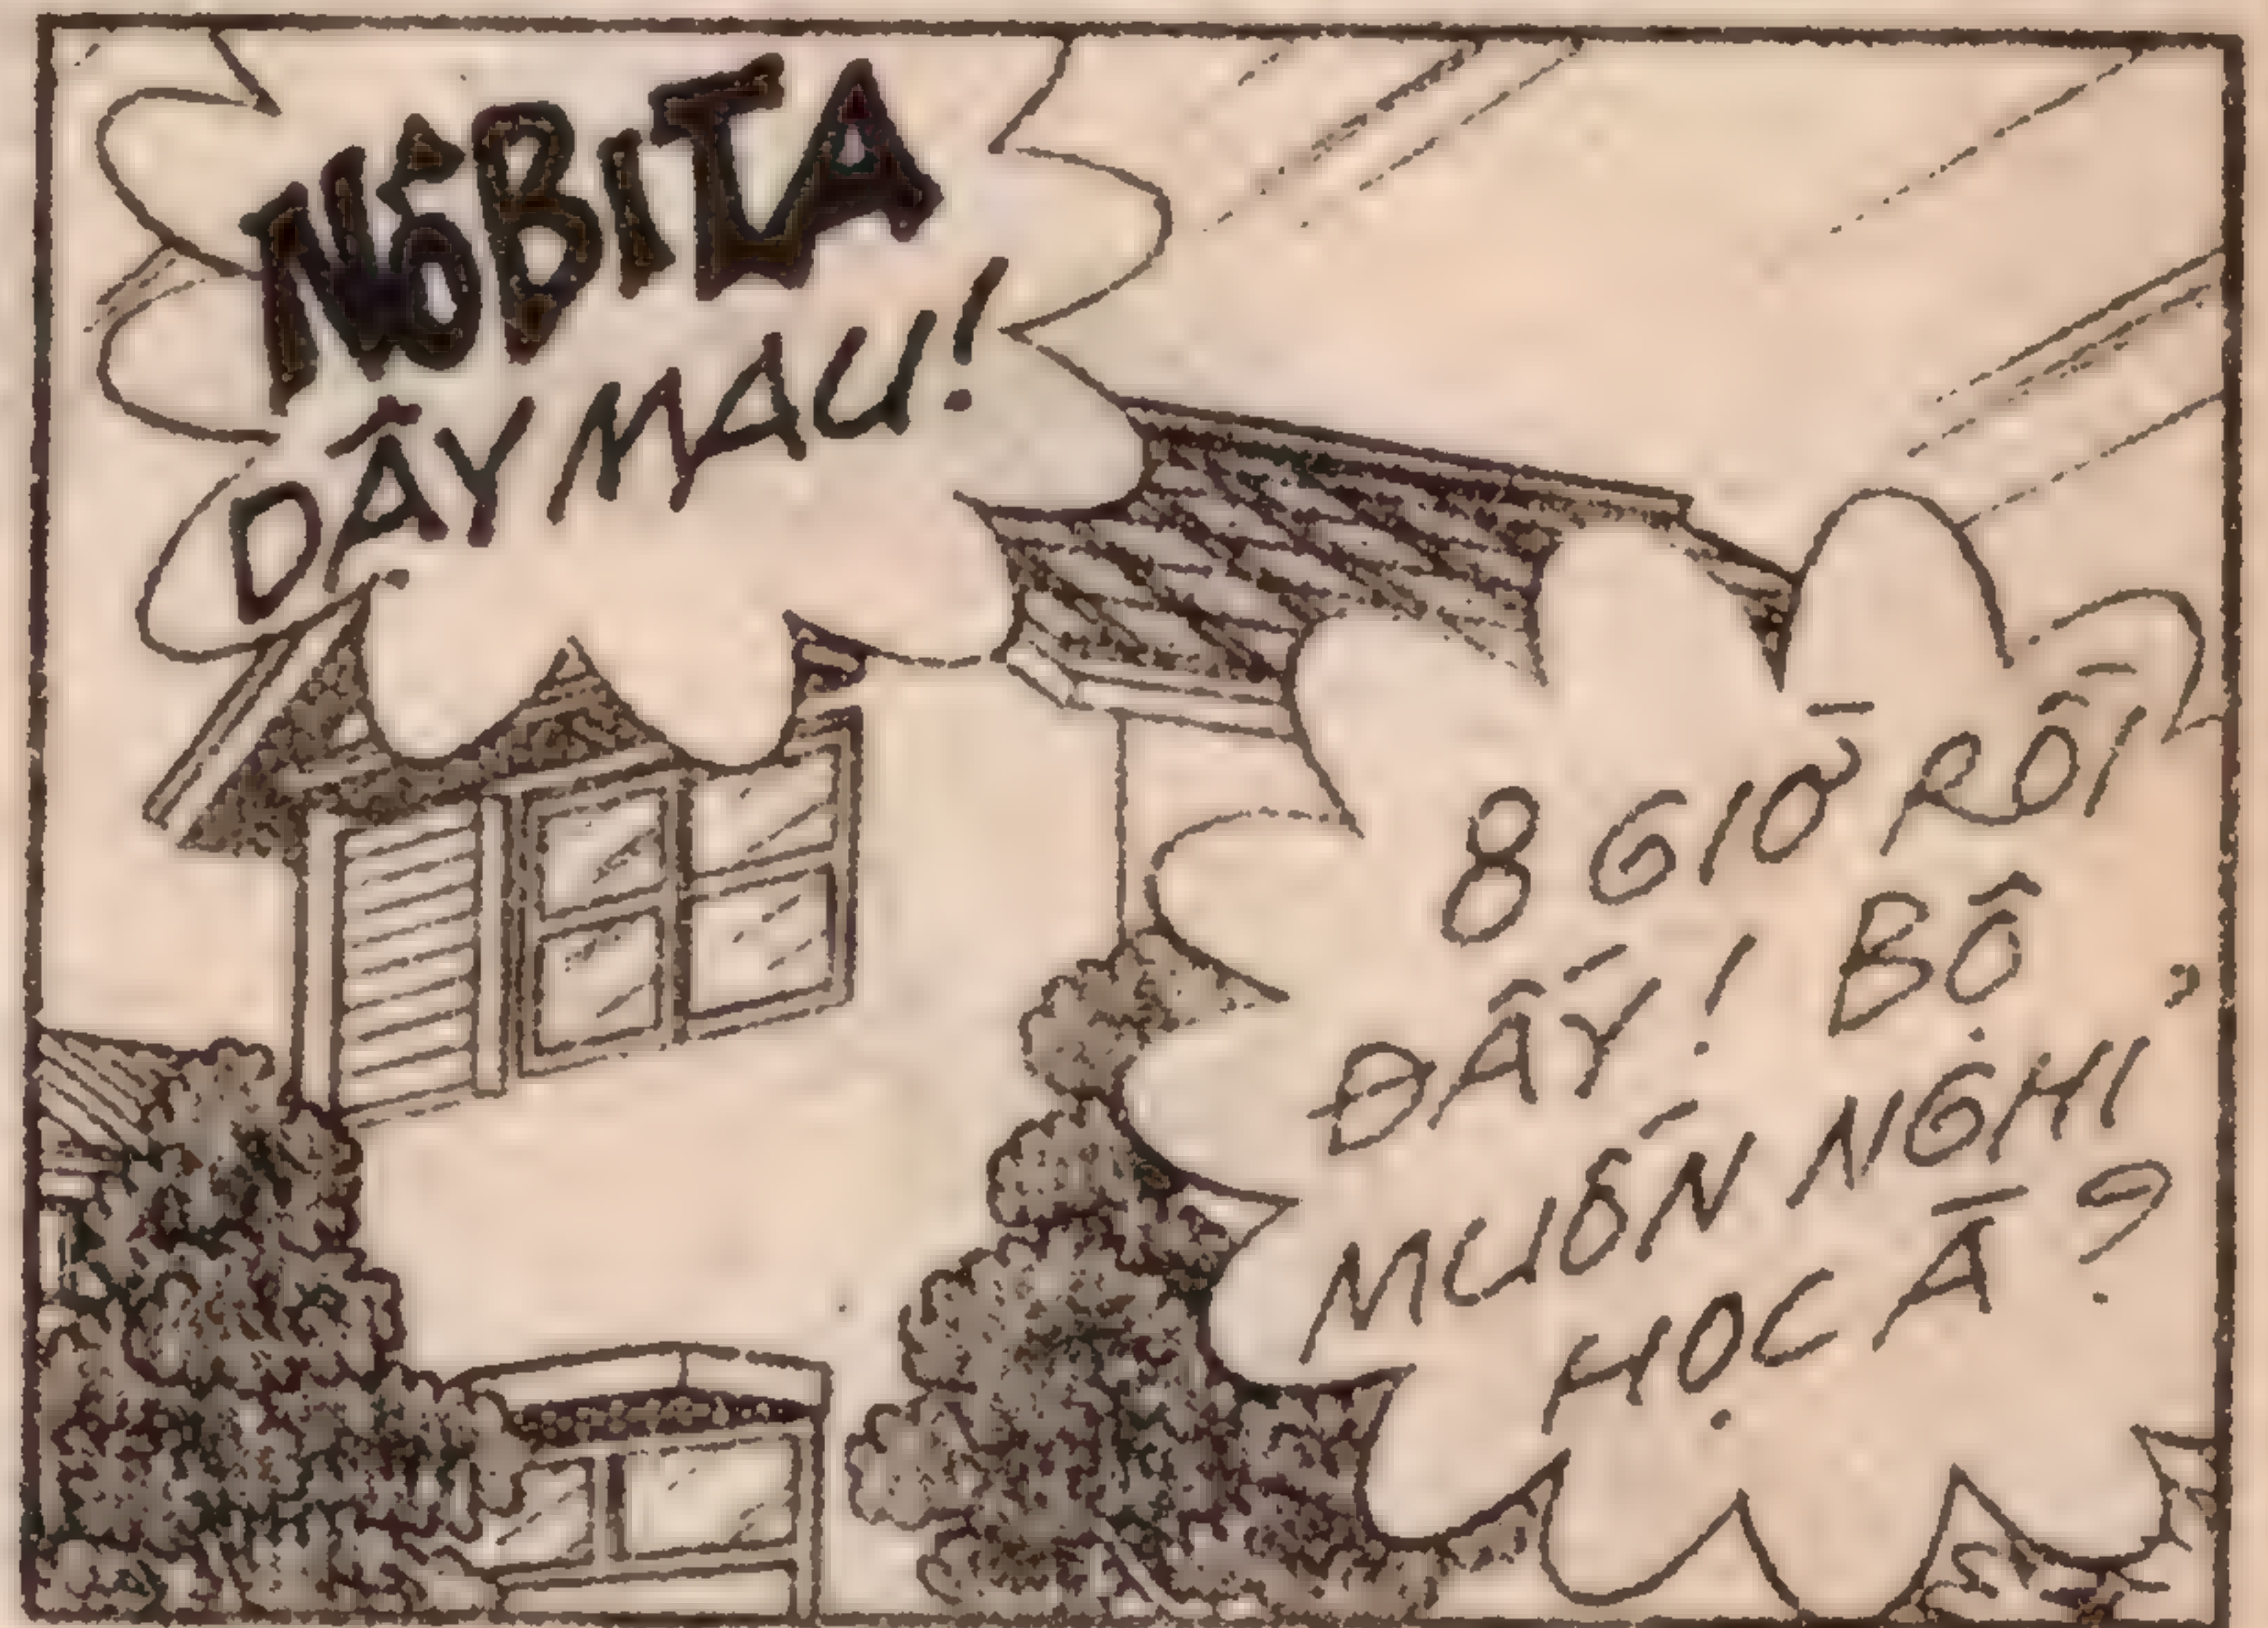 NÔBITA
DẬY MAU!
8 GIỜ RỒI
ĐẤY! BỘ
MUỐN NGHỈ
HỌC À?